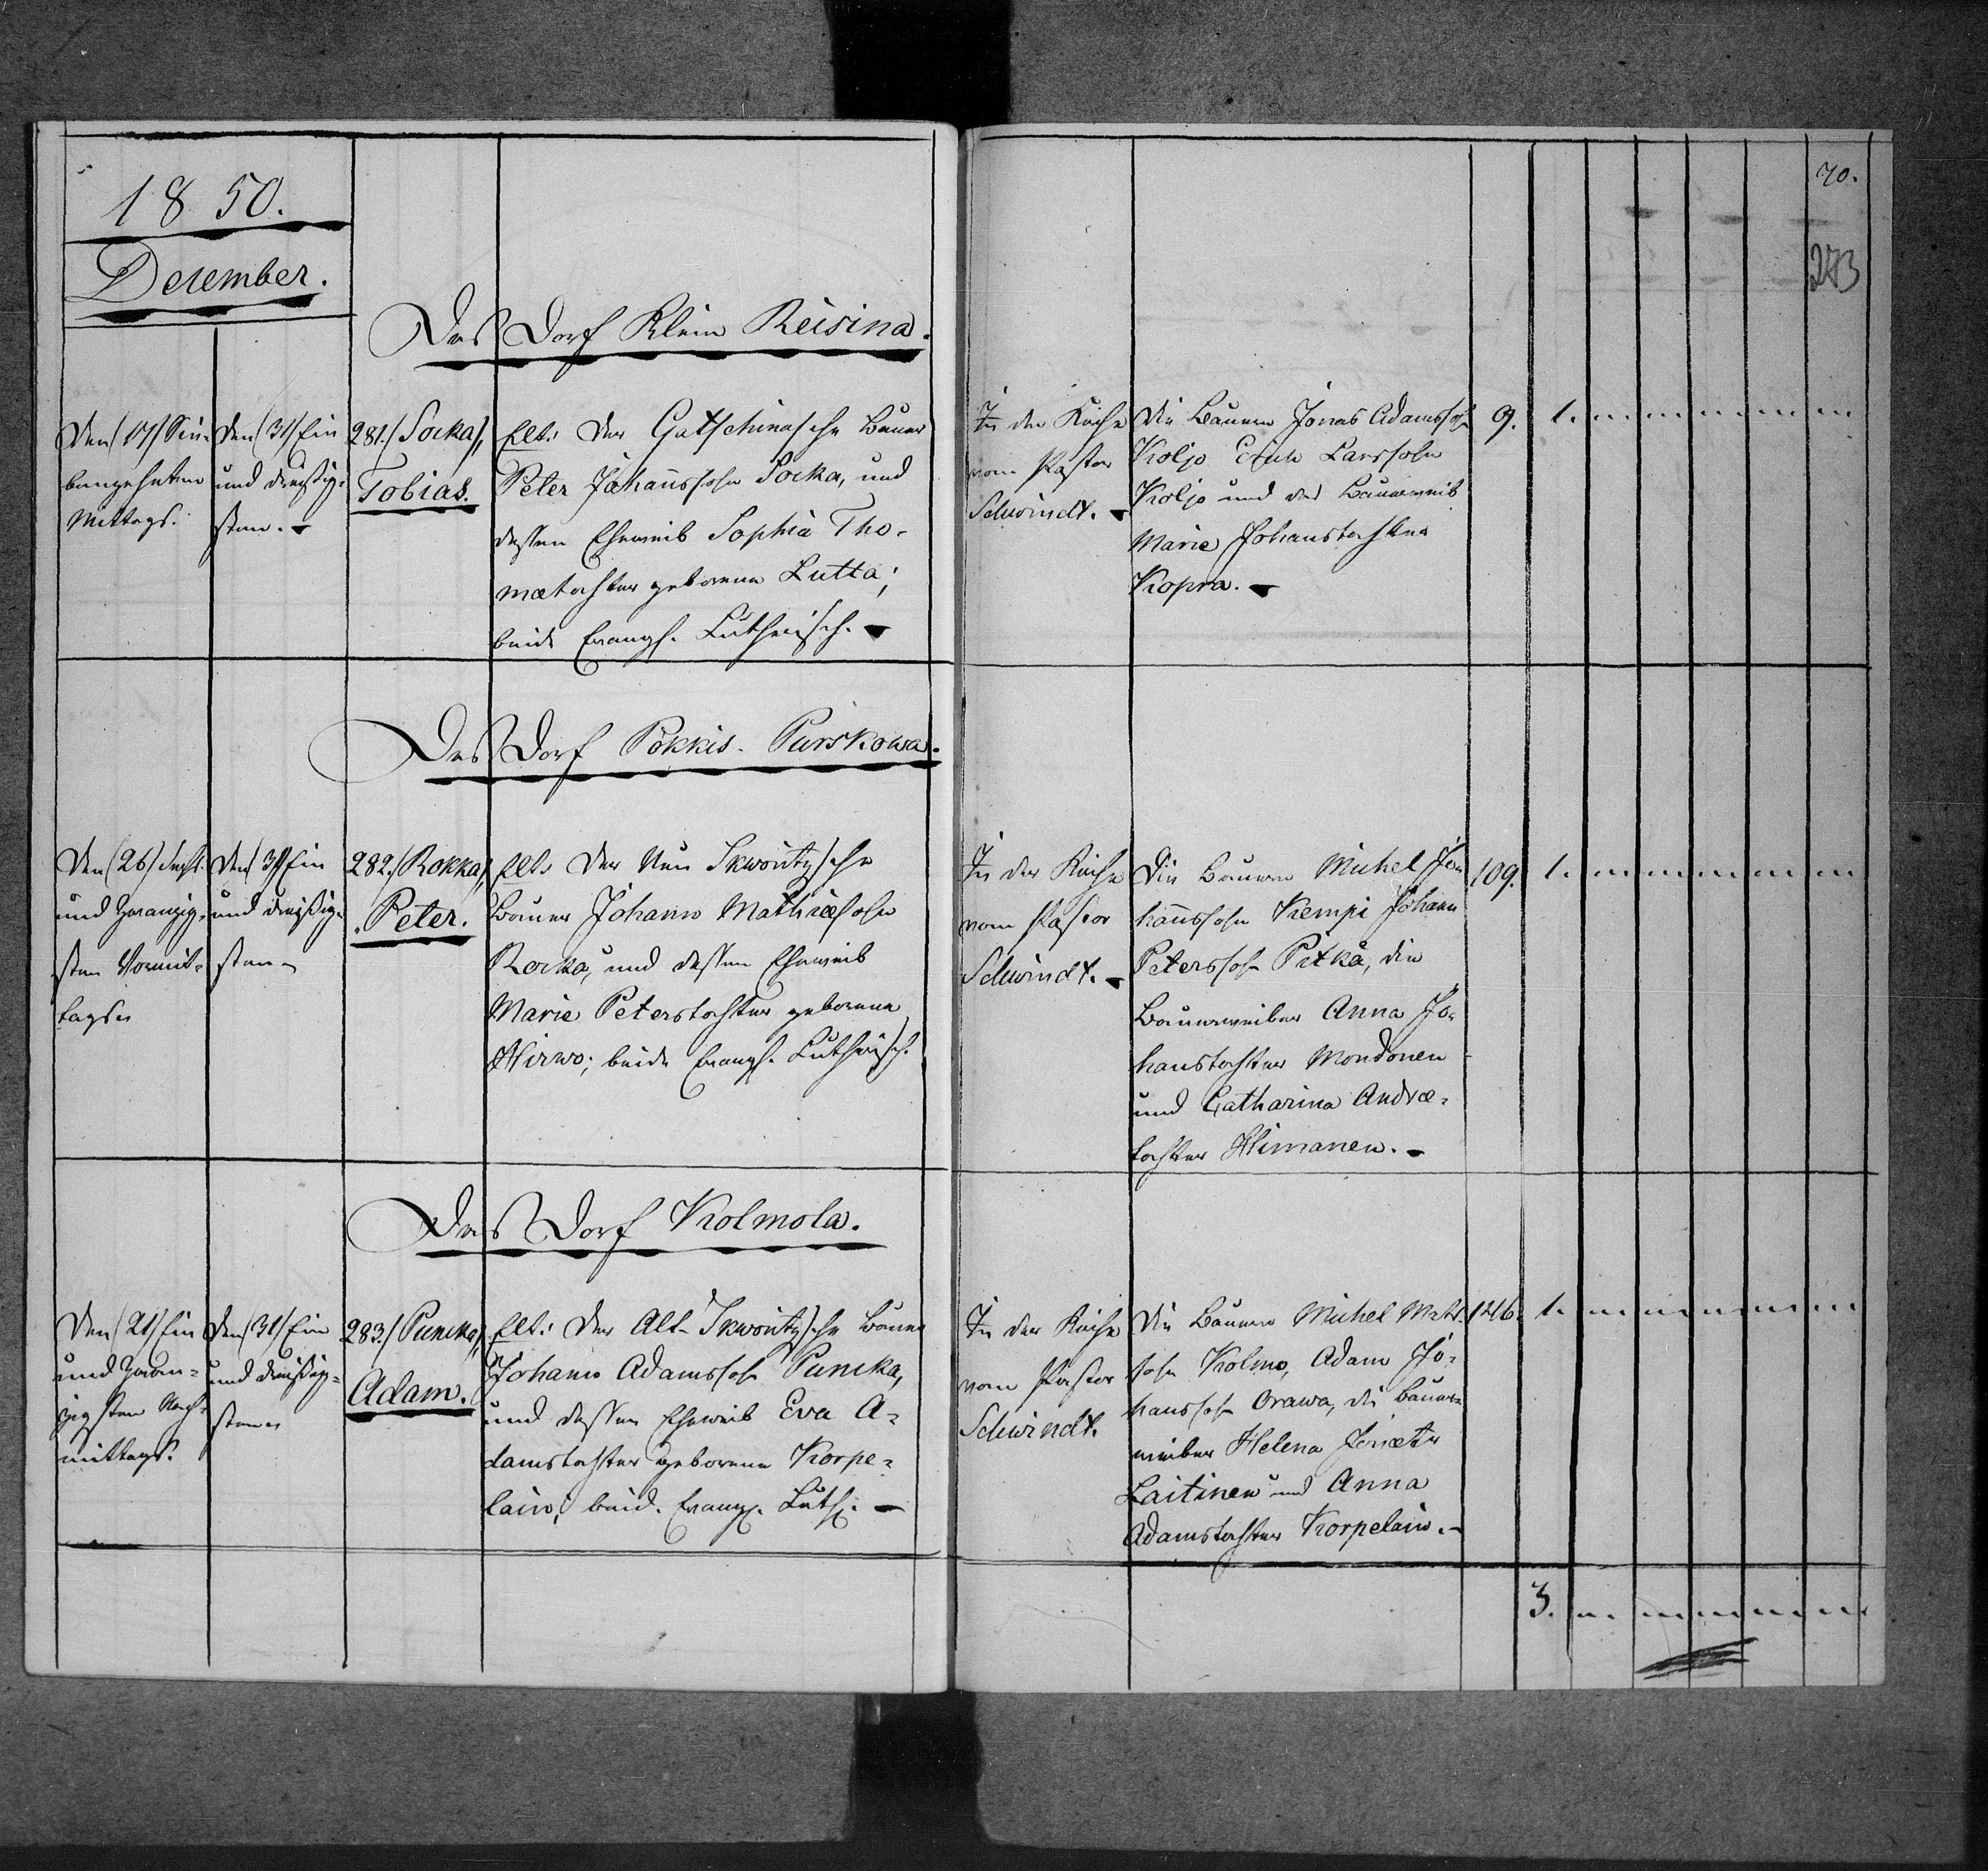 1850.
December.
70.
273
Das Dorf Klein Reisina.
Den (17) Sie-
benzehnten
Mittags.
Den (31) Ein
und dreißig-
sten.
281.) Socka),
Tobias.
Elt: Der Gatschinasche Bauer
Peter Johannssohn Socka, und
dessen Eheweib Sophia Tho-
maetochter geborene Lutta;
beide Evangh. Lutherisch.
In der Kirche
vom Pastor
Schwindt.
Die Bauern Jonas Adamssohn
Koljo Erich Larssohn
Koljo und das Bauerweib
Marie Johanstochter
Kopra.
9.
1.
Das Dorf Pokkis-Purskowa.
Den (26) Sechs
und zwanzig-
sten Vormit-
tags
Den (31) Ein
und dreißig-
sten
282.) Rokka),
Peter.
Elt. Der Neu Skworitzsche
Bauer Johann Mathiæsohn
Rocka, und dessen Eheweib
Marie Peterstochter geborene
Hirwo; beide Evangh. Lutherisch.
In der Kirche
vom Pastor
Schwindt.
Die Bauern Michel Jo-
hannssohn Kempi Johann
Peterssohn Pitkä, die
Bauerweiber Anna Jo-
hanstochter Mondonen
und Catharina Andræ-
tochter Himanen.
109.
1.
Das Dorf Kolmola.
Den (21) Ein
und zwan-
zigsten Nach-
mittags.
Den (31) Ein
und dreißig-
sten
283.) Puncka),
Adam.
Elt: Der Alt-Skworitzsche Bauer
Johann Adamssohn Puncka,
und dessen Eheweib Eva A-
damstochter geborene Korpe-
lain; beid. Evang. Luth.
In der Kirche
vom Pastor
Schwindt.
Die Bauern Michel Mats-
sohn Kolmo, Adam Jo-
hanssohn Orawa, die Bauer-
weiber Helena
Laitinen und Anna
Adamstochter Korpelain.
126.
1.
3.